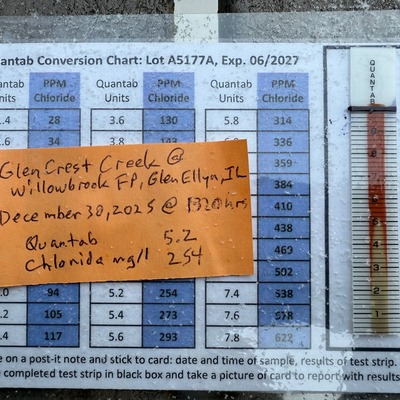 uantab Conversion Chart: Lot A5177A, Exp. 06/2027
antab Units PPM Chloride Quantab Units PPM Chloride Quantab Units PPM Chloride
.4 28 3.6 130 5.8 314
.6 34 3.8 143 336
359
384
410
438
463
502
.0 94 5.2 254 7.4 538
.2 105 5.4 273 7.6 578
.4 117 5.6 293 7.8 622
Glen Crest Creek @
Willowbrook FP, Glen Ellyn, IL
December 30, 2025 @ 1320hrs
Quantab 5.2
Chlorida mg/l 254
QUANTAB
8
7
6
5
4
3
2
1
e on a post-it note and stick to card: date and time of sample, results of test strip.
e completed test strip in black box and take a picture of card to report with results